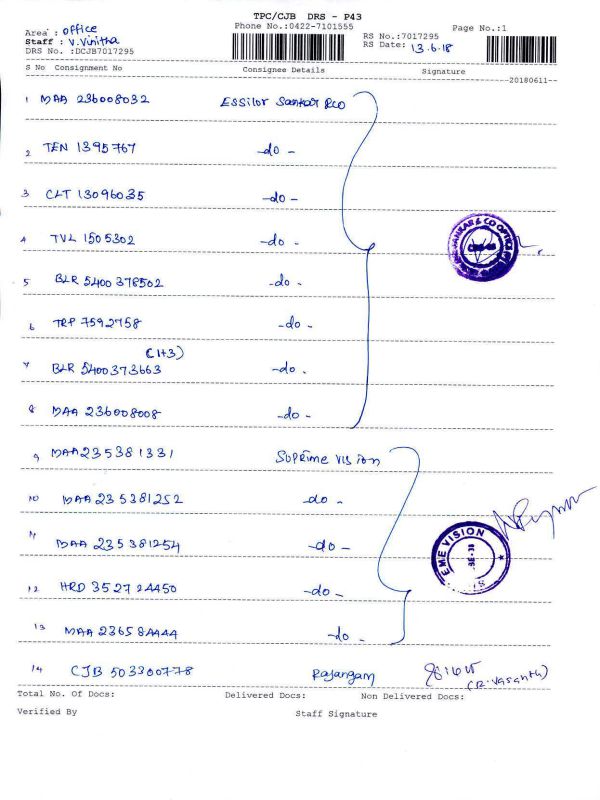 TPC/CJB DRS - P43
Phone No.:0422-7101555
Page No.:1
Area : office
Staff : V.Vinitha
DRS No. :DCJB7017295
RS No.:7017295
RS Date: 13.6.18
S No Consignment No Consignee Details Signature
--20180611--
1 MAA 236008032 Essilor Sankar &co
2 TEN 1395767 -do-
3 CLT 13096035 -do-
4 TVL 1505302 -do-
5 BLR 5400378502 -do-
6 TRP 7592758 -do-
(1+3)
7 BLR 5400373663 -do-
8 MAA 236008008 -do-
9 MAA235381331 SUPRIME VISION
10 MAA 235381252 -do-
11 MAA 235381254 -do-
EME VISION
12 HRD 352724450 -do-
13 MAA 236584444 -do-
14 CJB 503300778 Rajangam
(R.Vasanth)
Total No. Of Docs: Delivered Docs: Non Delivered Docs:
Verified By Staff Signature